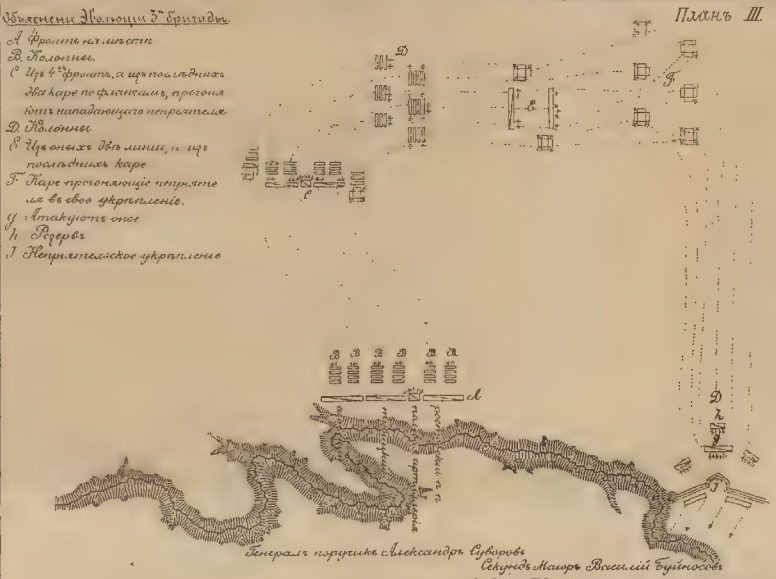 Объясненіе Эволюціи 3й бригады.
Планъ III.
A Фронтъ на мѣстѣ
B. Колонны.
C Изъ 4хъ фронтъ, а изъ послѣднихъ
два каре по флангамъ, прогоня
ютъ нападающаго непріятеля
D. Колонны
E Изъ оныхъ двѣ линіи, и изъ
послѣднихъ каре
F Каре прогоняющіе непріяте
ля въ свое укрѣпленіе.
g Атакуютъ оное
h Резервъ
J Непріятельское укрѣпленіе
D
F
E
C
B B B B B B
A
D
h
g
J
ростовскій п п
Генералъ поручикъ Александръ Суворовъ
Секундъ Маіоръ Василій Буйносовъ